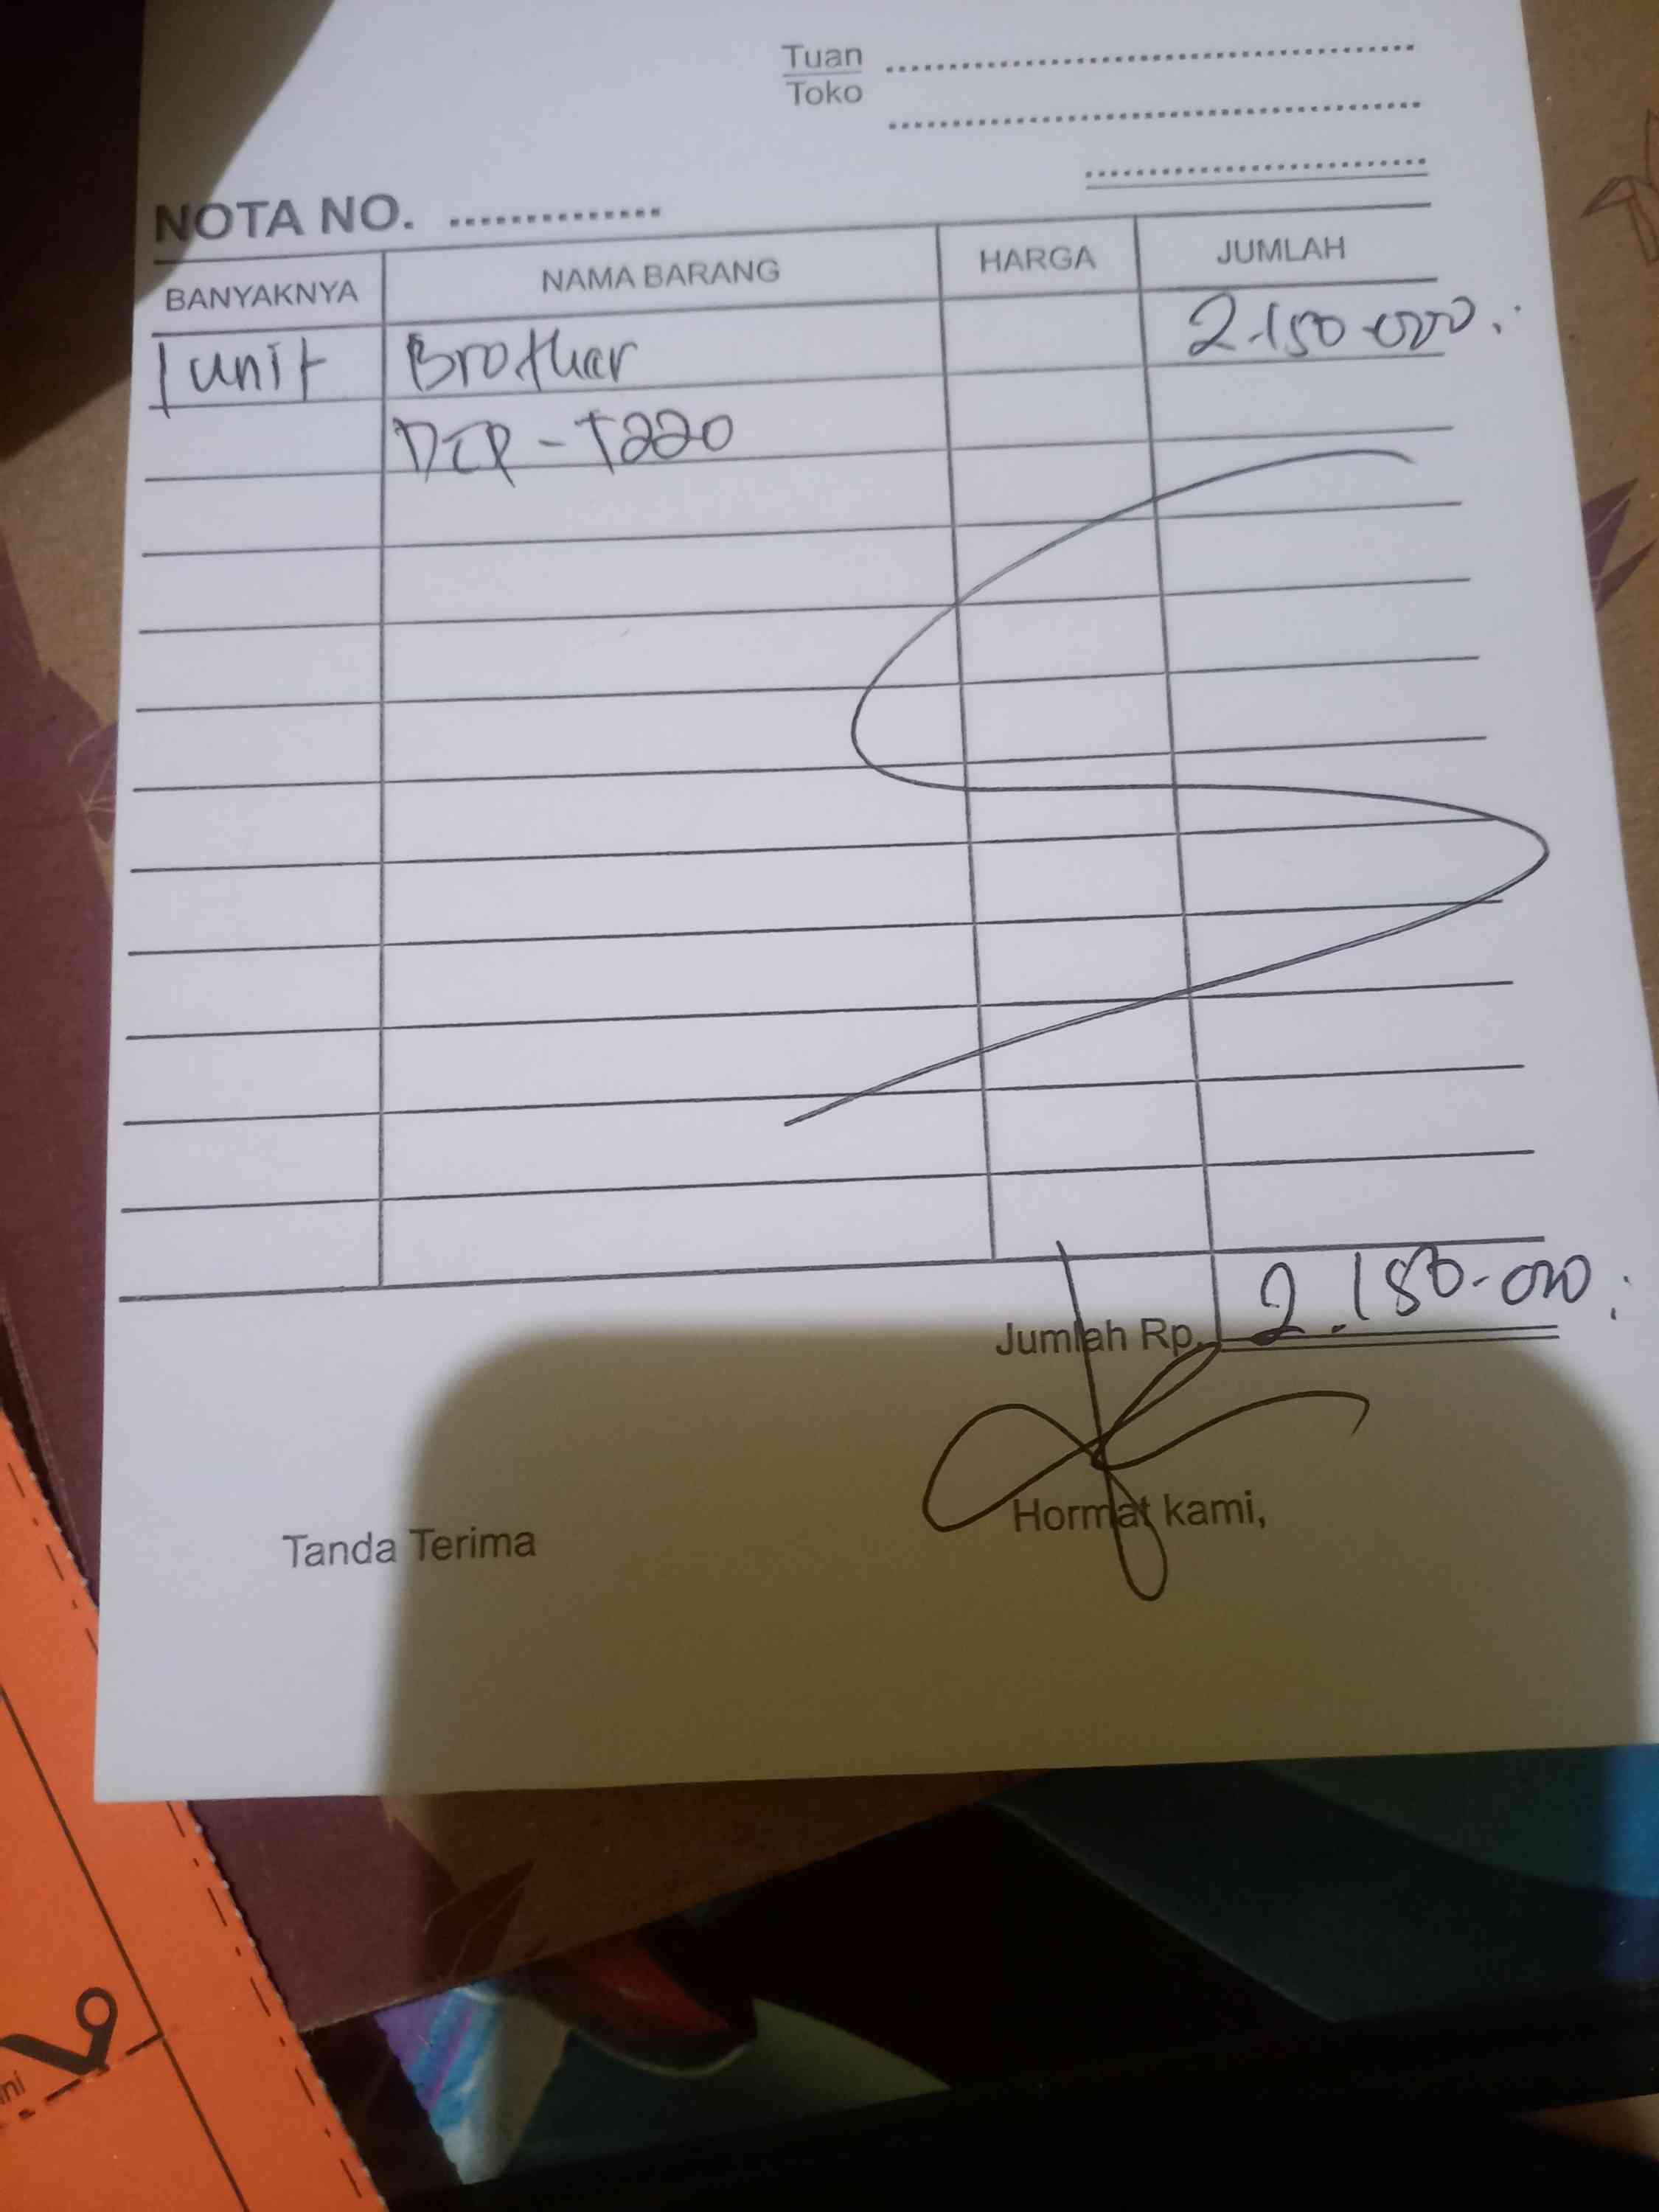 Tuan
Toko
NOTA NO.
BANYAKNYA NAMA BARANG HARGA JUMLAH
1 unit Brother 2.150.000
DCP-T220
Jumlah Rp. 2.150.000
Tanda Terima Hormat kami,
ni